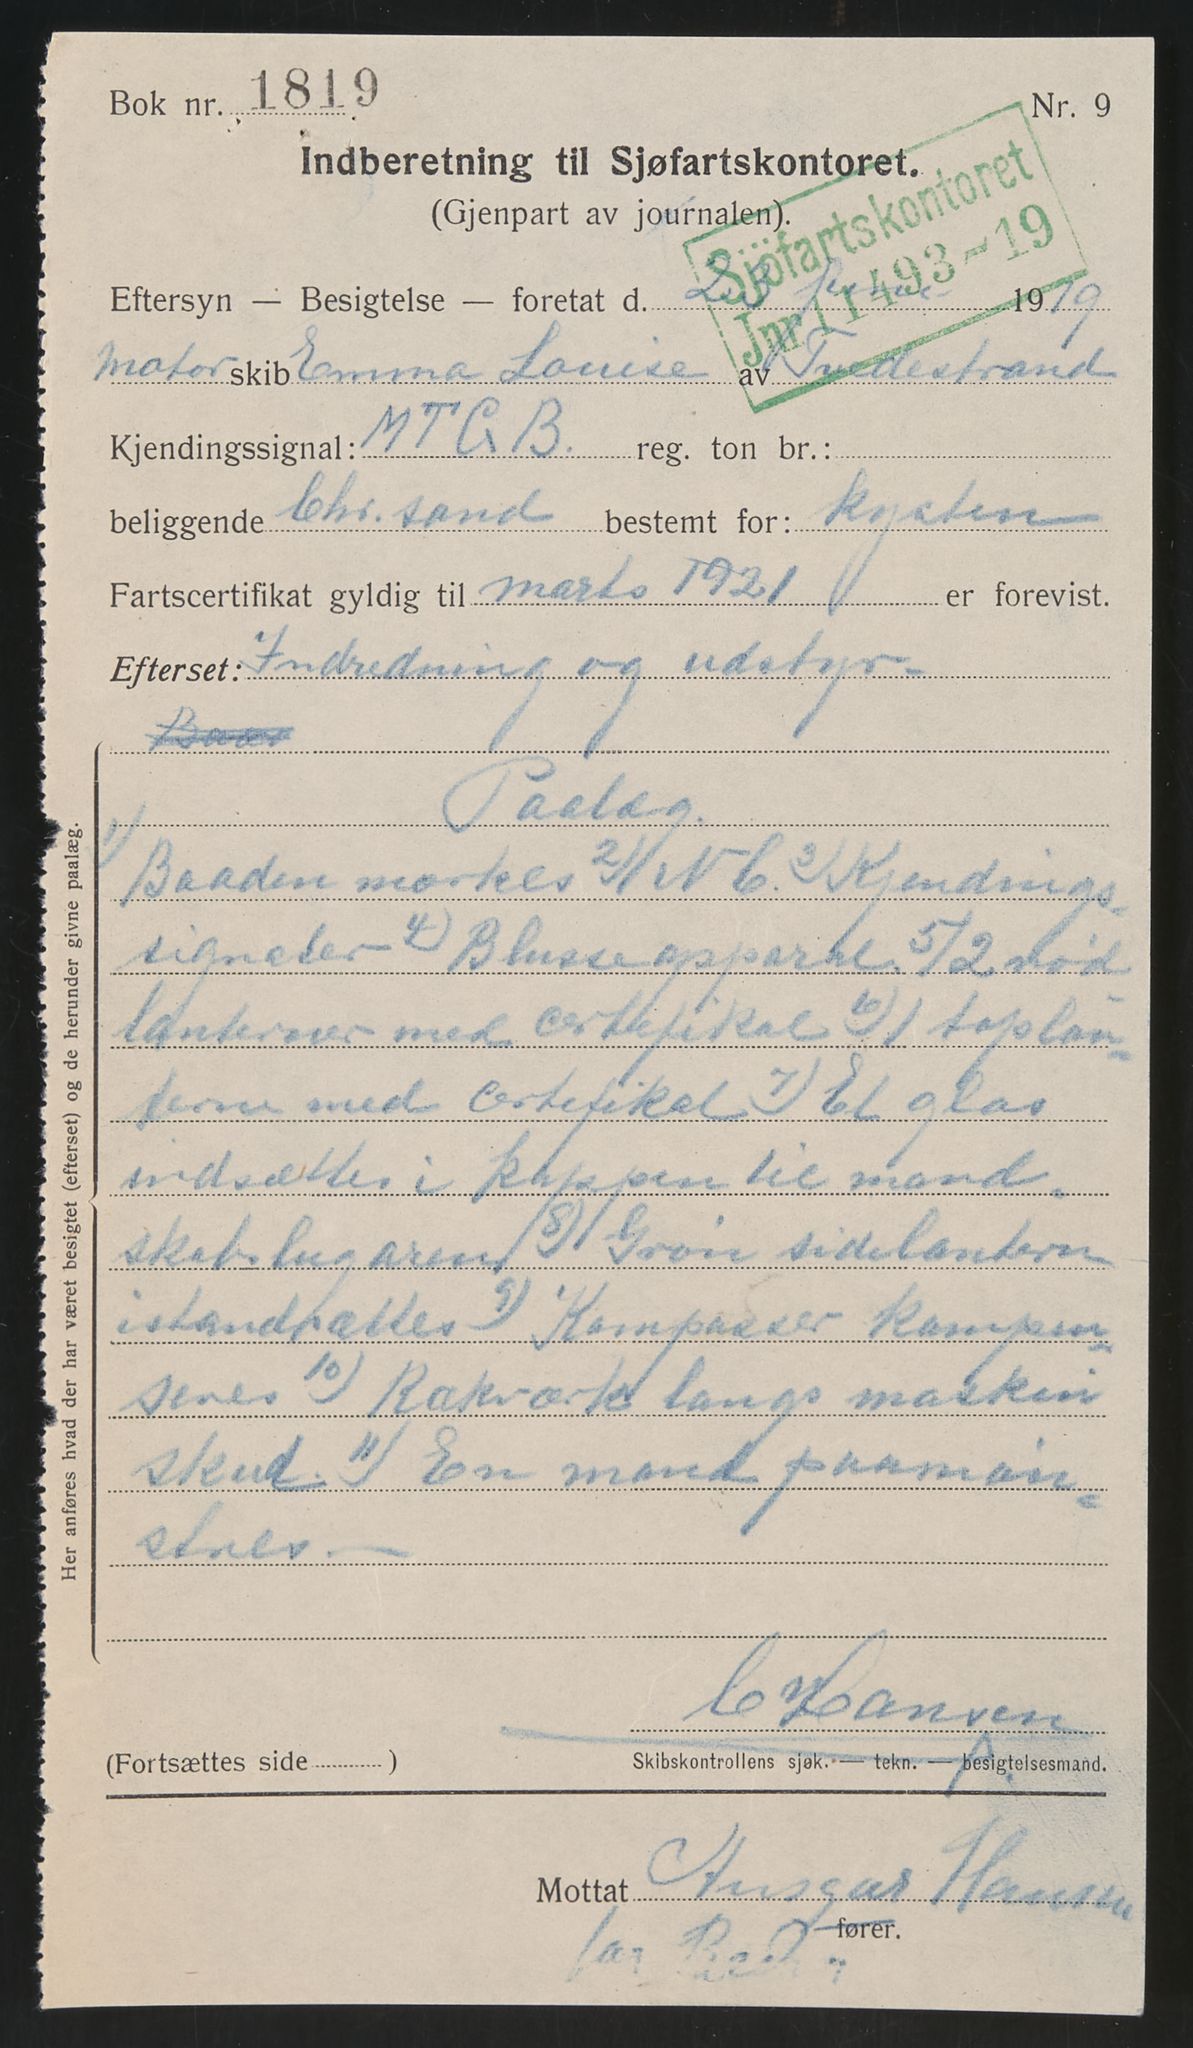 Bok nr. 1819 Nr. 9
Indberetning til Sjøfartskontoret.
(Gjenpart av journalen).
Sjöfartskontoret
Jnr 11493-19
Eftersyn — Besigtelse — foretat d. 23 1919
Motor skib Emma Louise av Tvedestrand
Kjendingssignal: MTGB. reg. ton br.:
beliggende Chr.sand bestemt for: kysten
Fartscertifikat gyldig til marts 1921 er forevist.
Efterset: Indredning og udstyr-
Paalæg.
1) Baaden mærkes 2) N C. 3) Kjendings-
signaler 4) Blusseapparat. 5) 2 nød
lanterner med certefikat 6) 1 toplan-
terne med certefikat 7) Et glas
indsættes i kappen til mand-
skabslugaren 8) Grøn sidelantern
istandsættes 9) Kompasser kompen-
seres 10) Rækværk langs maskin
skud. 11) En mand paamøn-
stres. —
Her anføres hvad der har været besigtet (efterset) og de herunder givne paalæg.
C Hansen
(Fortsættes side ) Skibskontrollens sjøk. — tekn. — besigtelsesmand.
Mottat Ansgar Hansen
fører.
for